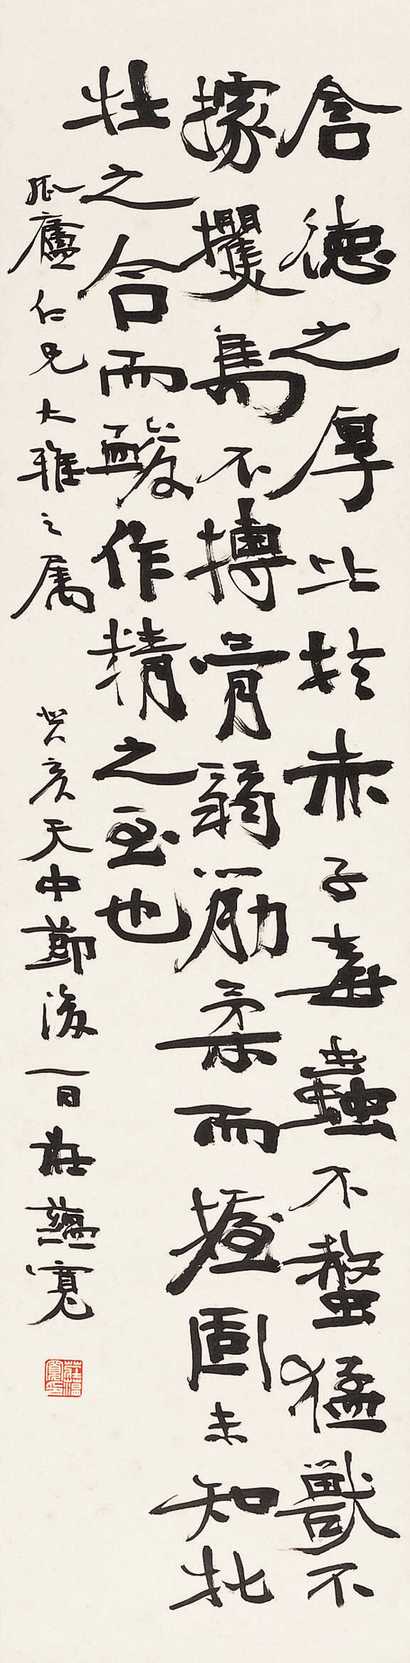 含德之厚比於赤子毒蟲不螫猛獸不
據攫鳥不搏骨弱筋柔而握固未知牝
牡之合而酸作精之至也
廬仁兄大雅之属
癸亥天中節後一日莊蘊寬